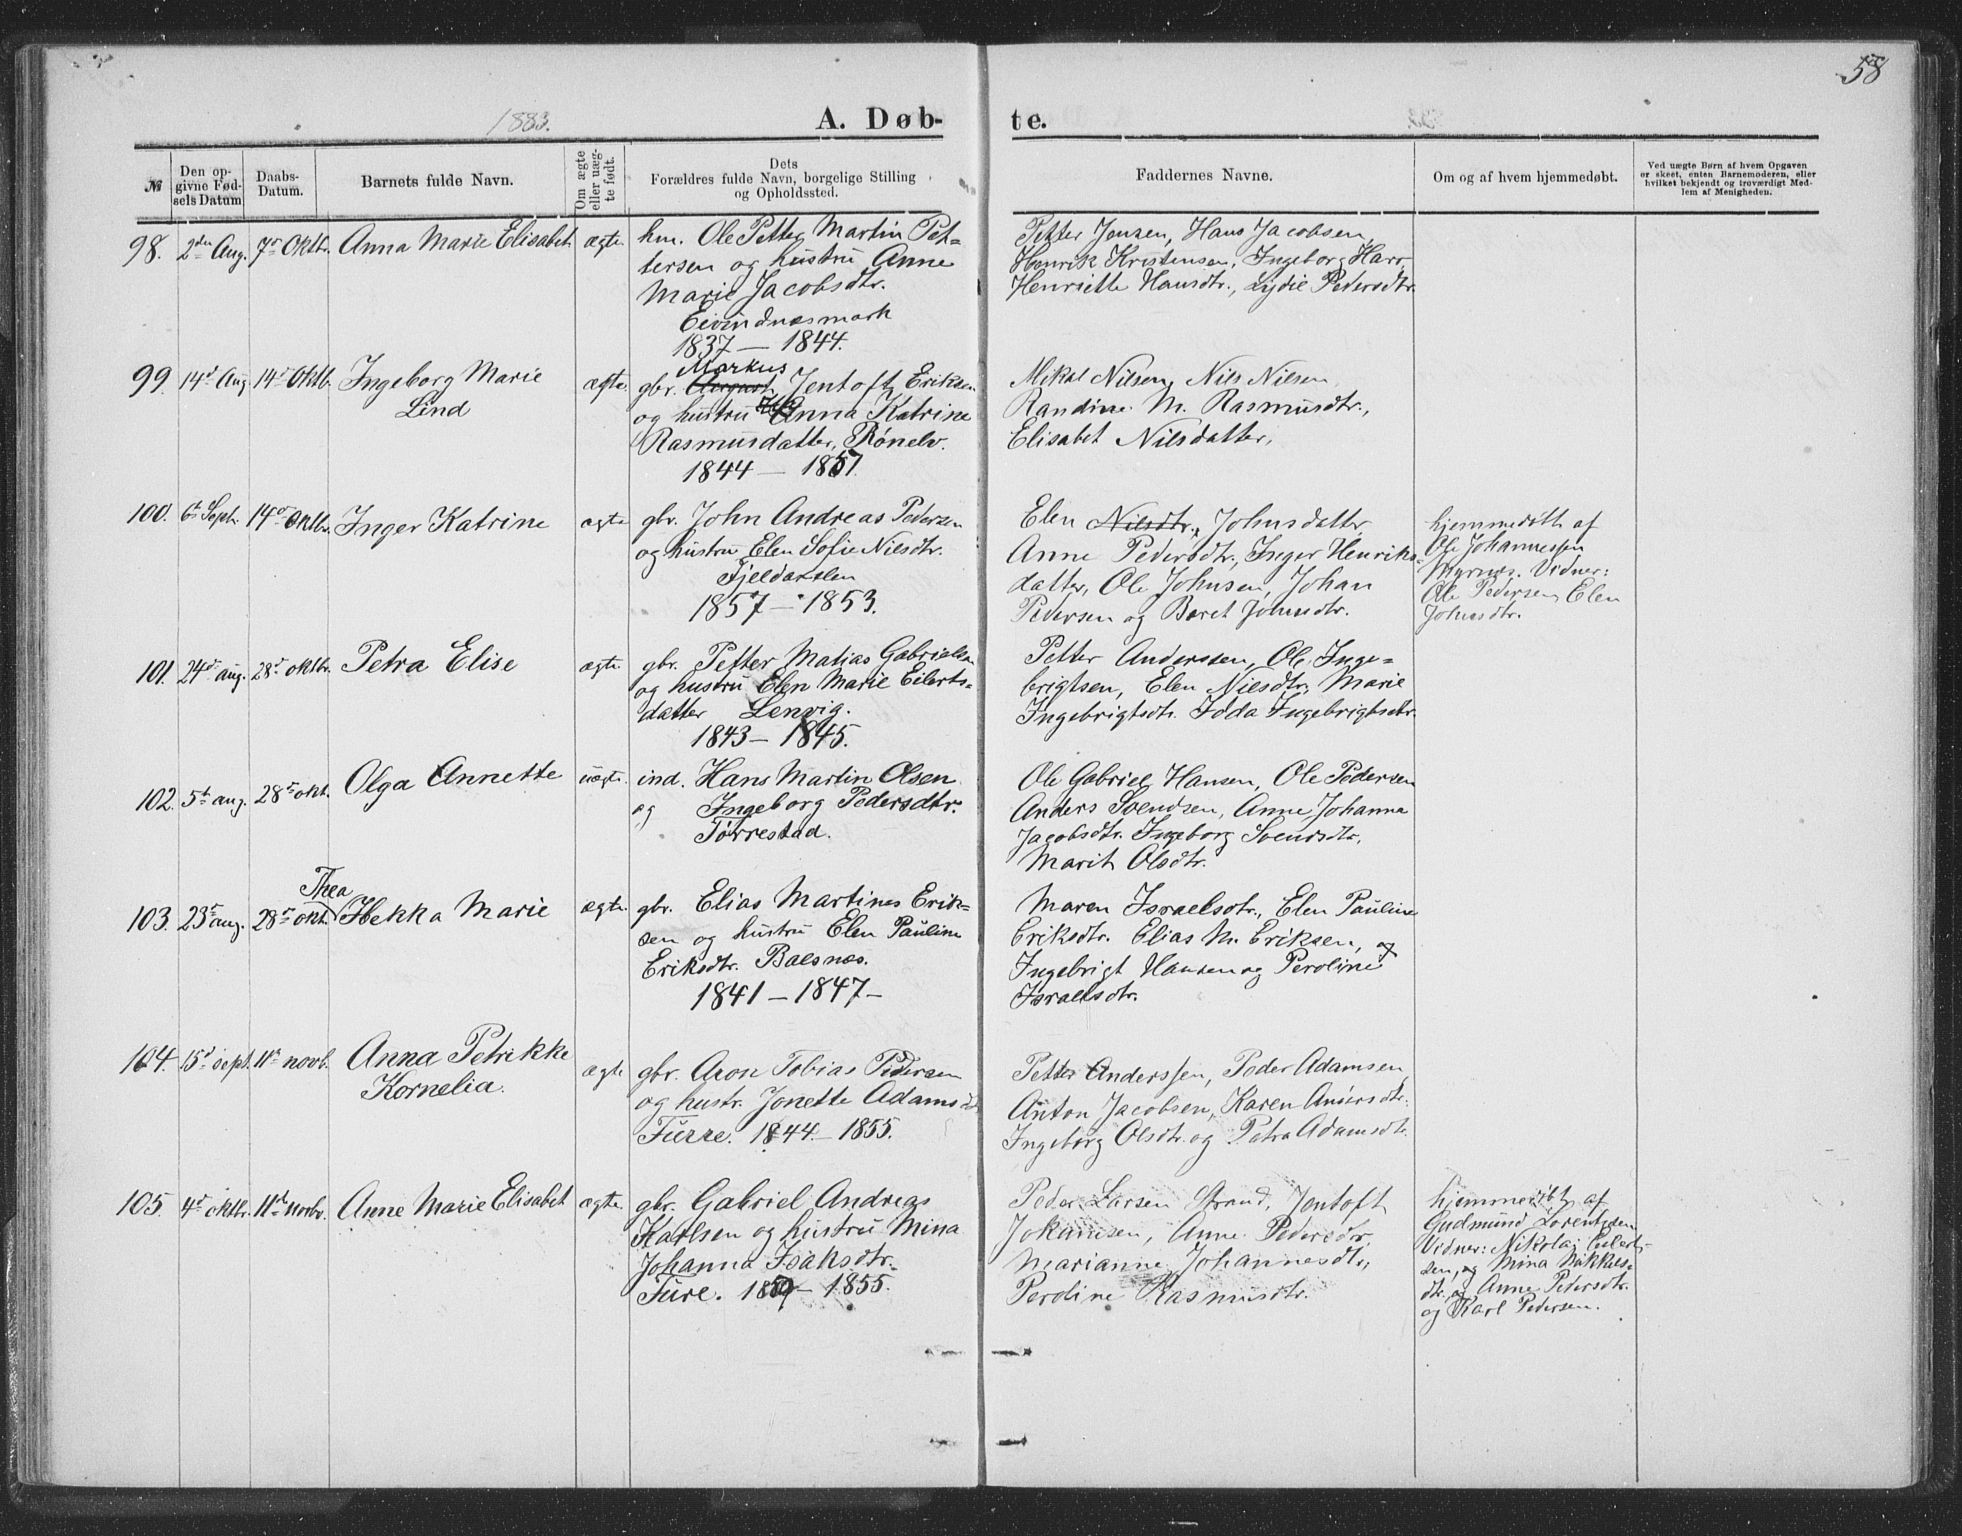 58
1883.
A. Døb-
te.
№
Den op-
givne Fød-
sels Datum
Daabs-
Datum.
Barnets fulde Navn.
Om ægte
eller uæg-
te født.
Dets
Forældres fulde Navn, borgelige Stilling
og Opholdssted.
Faddernes Navne.
Om og af hvem hjemmedøbt.
Ved uægte Børn af hvem Opgaven
er skeet, enten Barnemoderen, eller
hvilket bekjendt og troværdigt Med-
lem af Menigheden.
98. 2den Aug. 7de Oktbr. Anna Marie Elisabet ægte.
hm. Ole Petter Martin Pet-
tersen og hustru Anne
Marie Jacobsdtr.
Eivindnæsmark
1837 — 1844.
Petter Jensen, Hans Jacobsen
Henrik Kristensen, Ingeborg
Henriette Hansdtr., Lydie Pedersdtr.
99. 14d Aug 14d Oktb. Ingeborg Marie
Lind
ægte.
Markus
gbr. August Jentoft Eriksen
og hustru Anna Katrine
Rasmusdatter, Rønelv.
1844 — 1857.
Mikal Nilsen, Nils Nilsen,
Randine M. Rasmusdtr.,
Elisabet Nilsdatter,
100. 6t Sept. 14de Oktbr. Inger Katrine ægte
gbr. John Andreas Pedersen
og hustru Elen Sofie Nilsdtr.
Fjeldareslen
1857 — 1853.
Elen Nilsdtr., Johnsdatter
Anne Pedersdtr., Inger Henriks-
datter, Ole Johnsen, Johan
Pedersen og Beret Johnsdtr.
hjemmedøbt af
Ole Johannessen
Myrnes. Vidner:
Ole Pedersen, Elen
Johnsdtr.
101. 24d aug. 28d oktbr. Petra Elise ægte.
gbr. Petter Matias Gabrielsen
og hustru Elen Marie Eilerts-
datter Lenvig.
1843 — 1845.
Petter Anderssen, Ole Inge-
brigtsen, Elen Nielsdtr, Marie
Ingebrigtsdtr. Idda Ingebrigtsdtr.
102. 5t aug. 28d okt. Olga Annette uægte.
ind. Hans Martin Olsen
og Ingeborg Pedersdtr.
Tørrestad.
Ole Gabriel Hansen, Ole Pedersen
Anders Svendsen, Anne Johanna
Jacobsdtr. Ingeborg Svendsdtr,
Marit Olsdtr.
Thea
103. 23d aug. 28d okt. Hekka Marie ægte.
gbr. Elias Martines Erik-
sen og hustru Elen Pauline
Eriksdtr. Balsnæs.
1841 — 1847 —
Maren Israelsdtr., Elen Pauline
Eriksdtr. Elias M. Eriksen, og
Ingebrigt Hansen og Peroline
Israelsdtr.
104. 15d sept. 11te novb. Anna Petrikke
Kornelia.
ægte
gbr. Aron Tobias Pedersen
og hustr. Jonette Adamsd
Furre. 1844 — 1855.
Petter Anderssen, Peder Adamsen
Anton Jacobsen, Karen Andersdtr.
Ingeborg Olsdtr. og Petra Adamsdtr.
105. 4d oktbr. 11te novbr. Anne Marie Elisabet ægte.
gbr. Gabriel Andreas
Karlsen og hustru Mina
Johanna Isaksdtr.
Fure. 1859 — 1855.
Peder Larsen Strand, Jentoft
Jokumsen, Anne Pedersdtr.
Marianne Johannesdtr,
Peroline Rasmusdtr.
hjemmedøbt af
Gudmund Lorentzsen
Vidner: Nikolai Eilert-
sen, og Mina Mikkels-
dtr, og Anne Pedersdtr.
og Karl Pedersen.